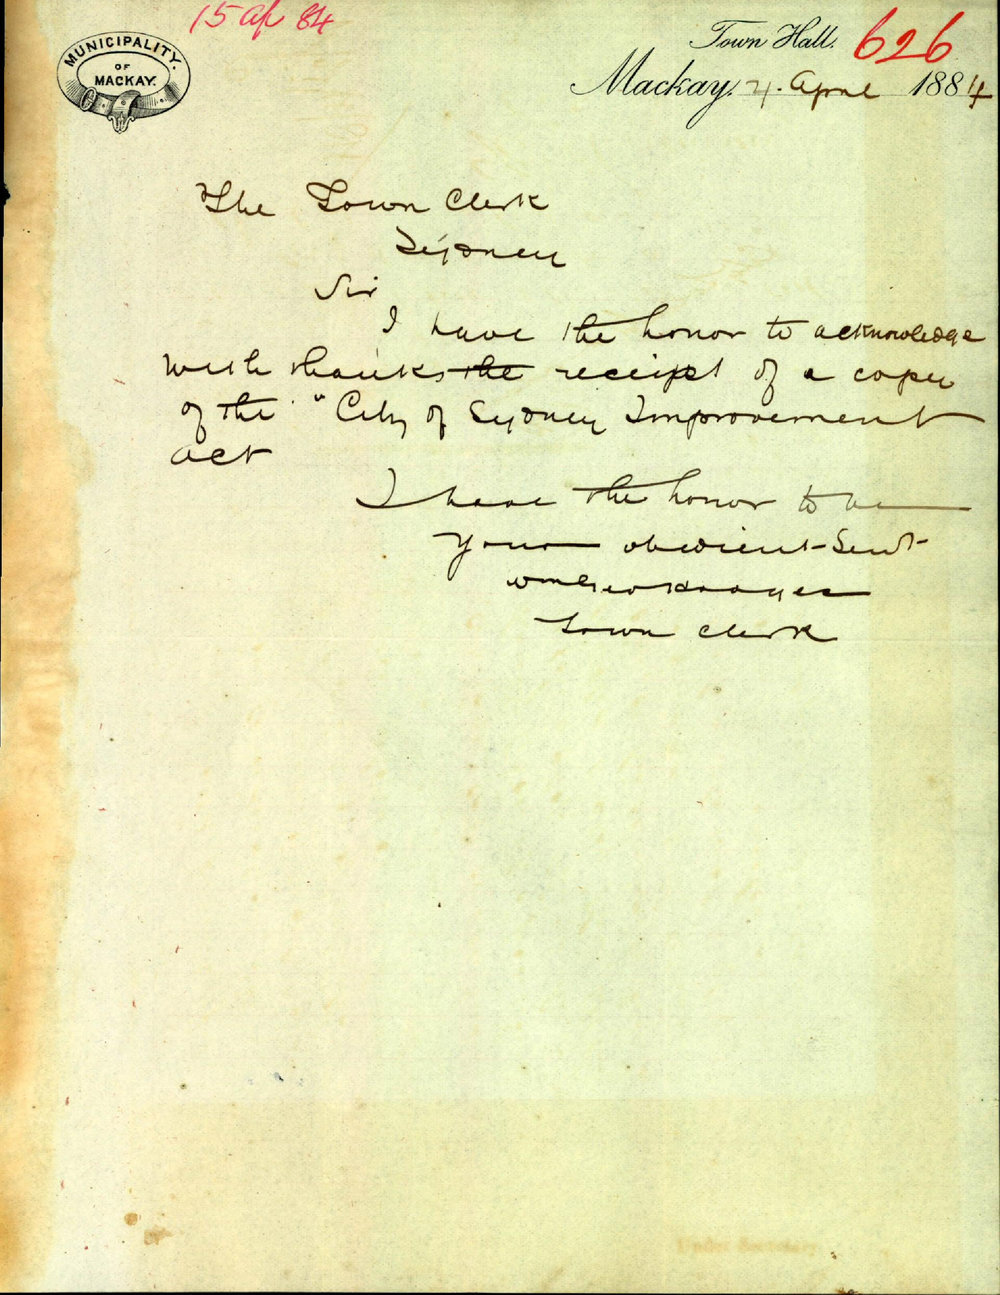 15 Ap 84
MUNICIPALITY.
OF
MACKAY.
Town Hall.
626
Mackay, April 1884
The Town Clerk
Sydney
Sir
I have the honor to acknowledge
with thanks the receipt of a copy
of the "City of Sydney Improvement
Act
I have the honor to be
Your obedient Servt
Town Clerk
Under Secretary